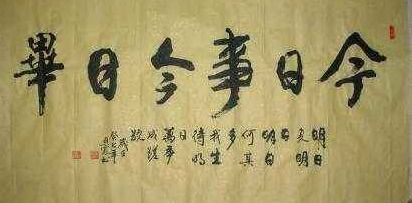 今日事今日畢
明日
复明
日
明日
何其
多
我生
待明
日
萬事
成蹉
跎